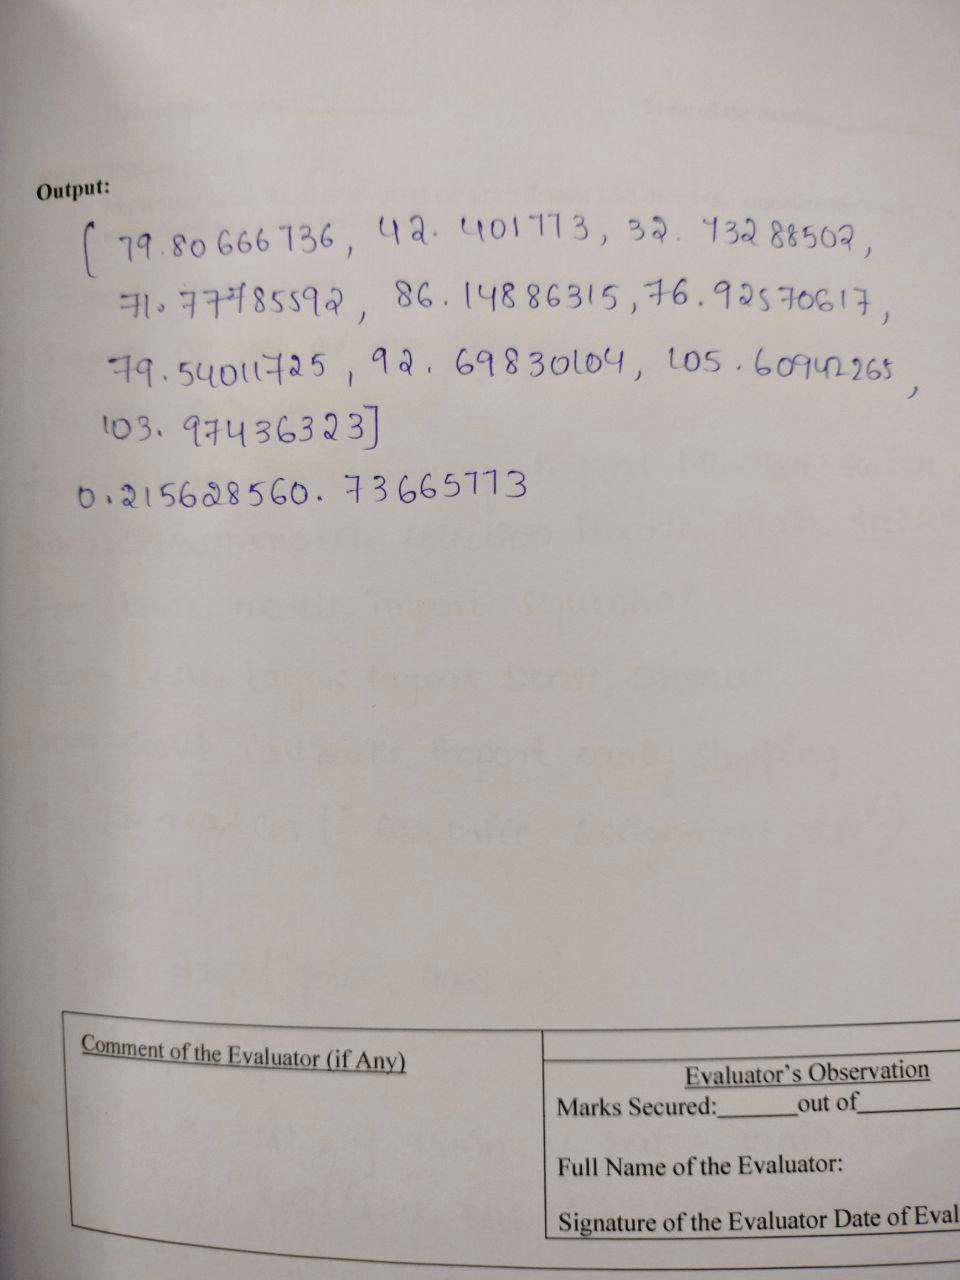 Output:
[79.80666736, 42.401773, 32.73288502,
71.77785592, 86.14886315, 76.92570617,
79.54011725, 92.69830104, 105.60942265,
103.97436323]
0.215628560.73665773
Comment of the Evaluator (if Any)
Evaluator's Observation
Marks Secured:______out of
Full Name of the Evaluator:
Signature of the Evaluator Date of Eval